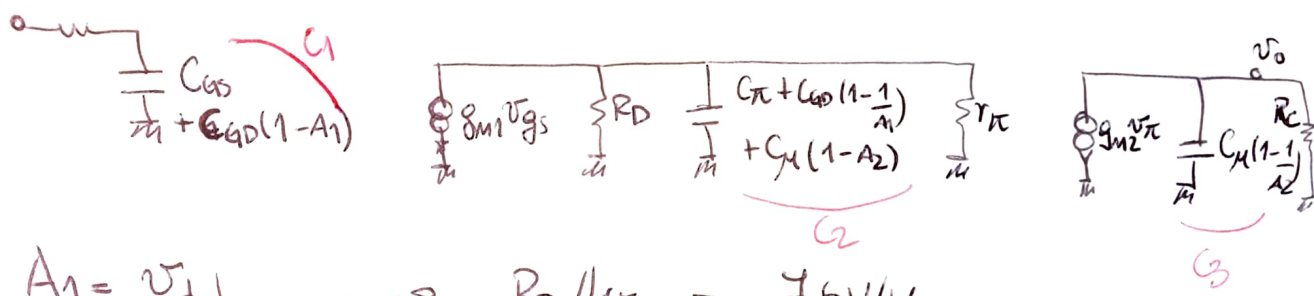 C1
CGS
+ CGD(1-A1)
gm1 vgs
RD
Cπ + CGD(1-1/A1)
+ Cμ(1-A2)
rπ
C2
vo
gm2 vπ
Cμ(1-1/A2)
RC
C3
A1=